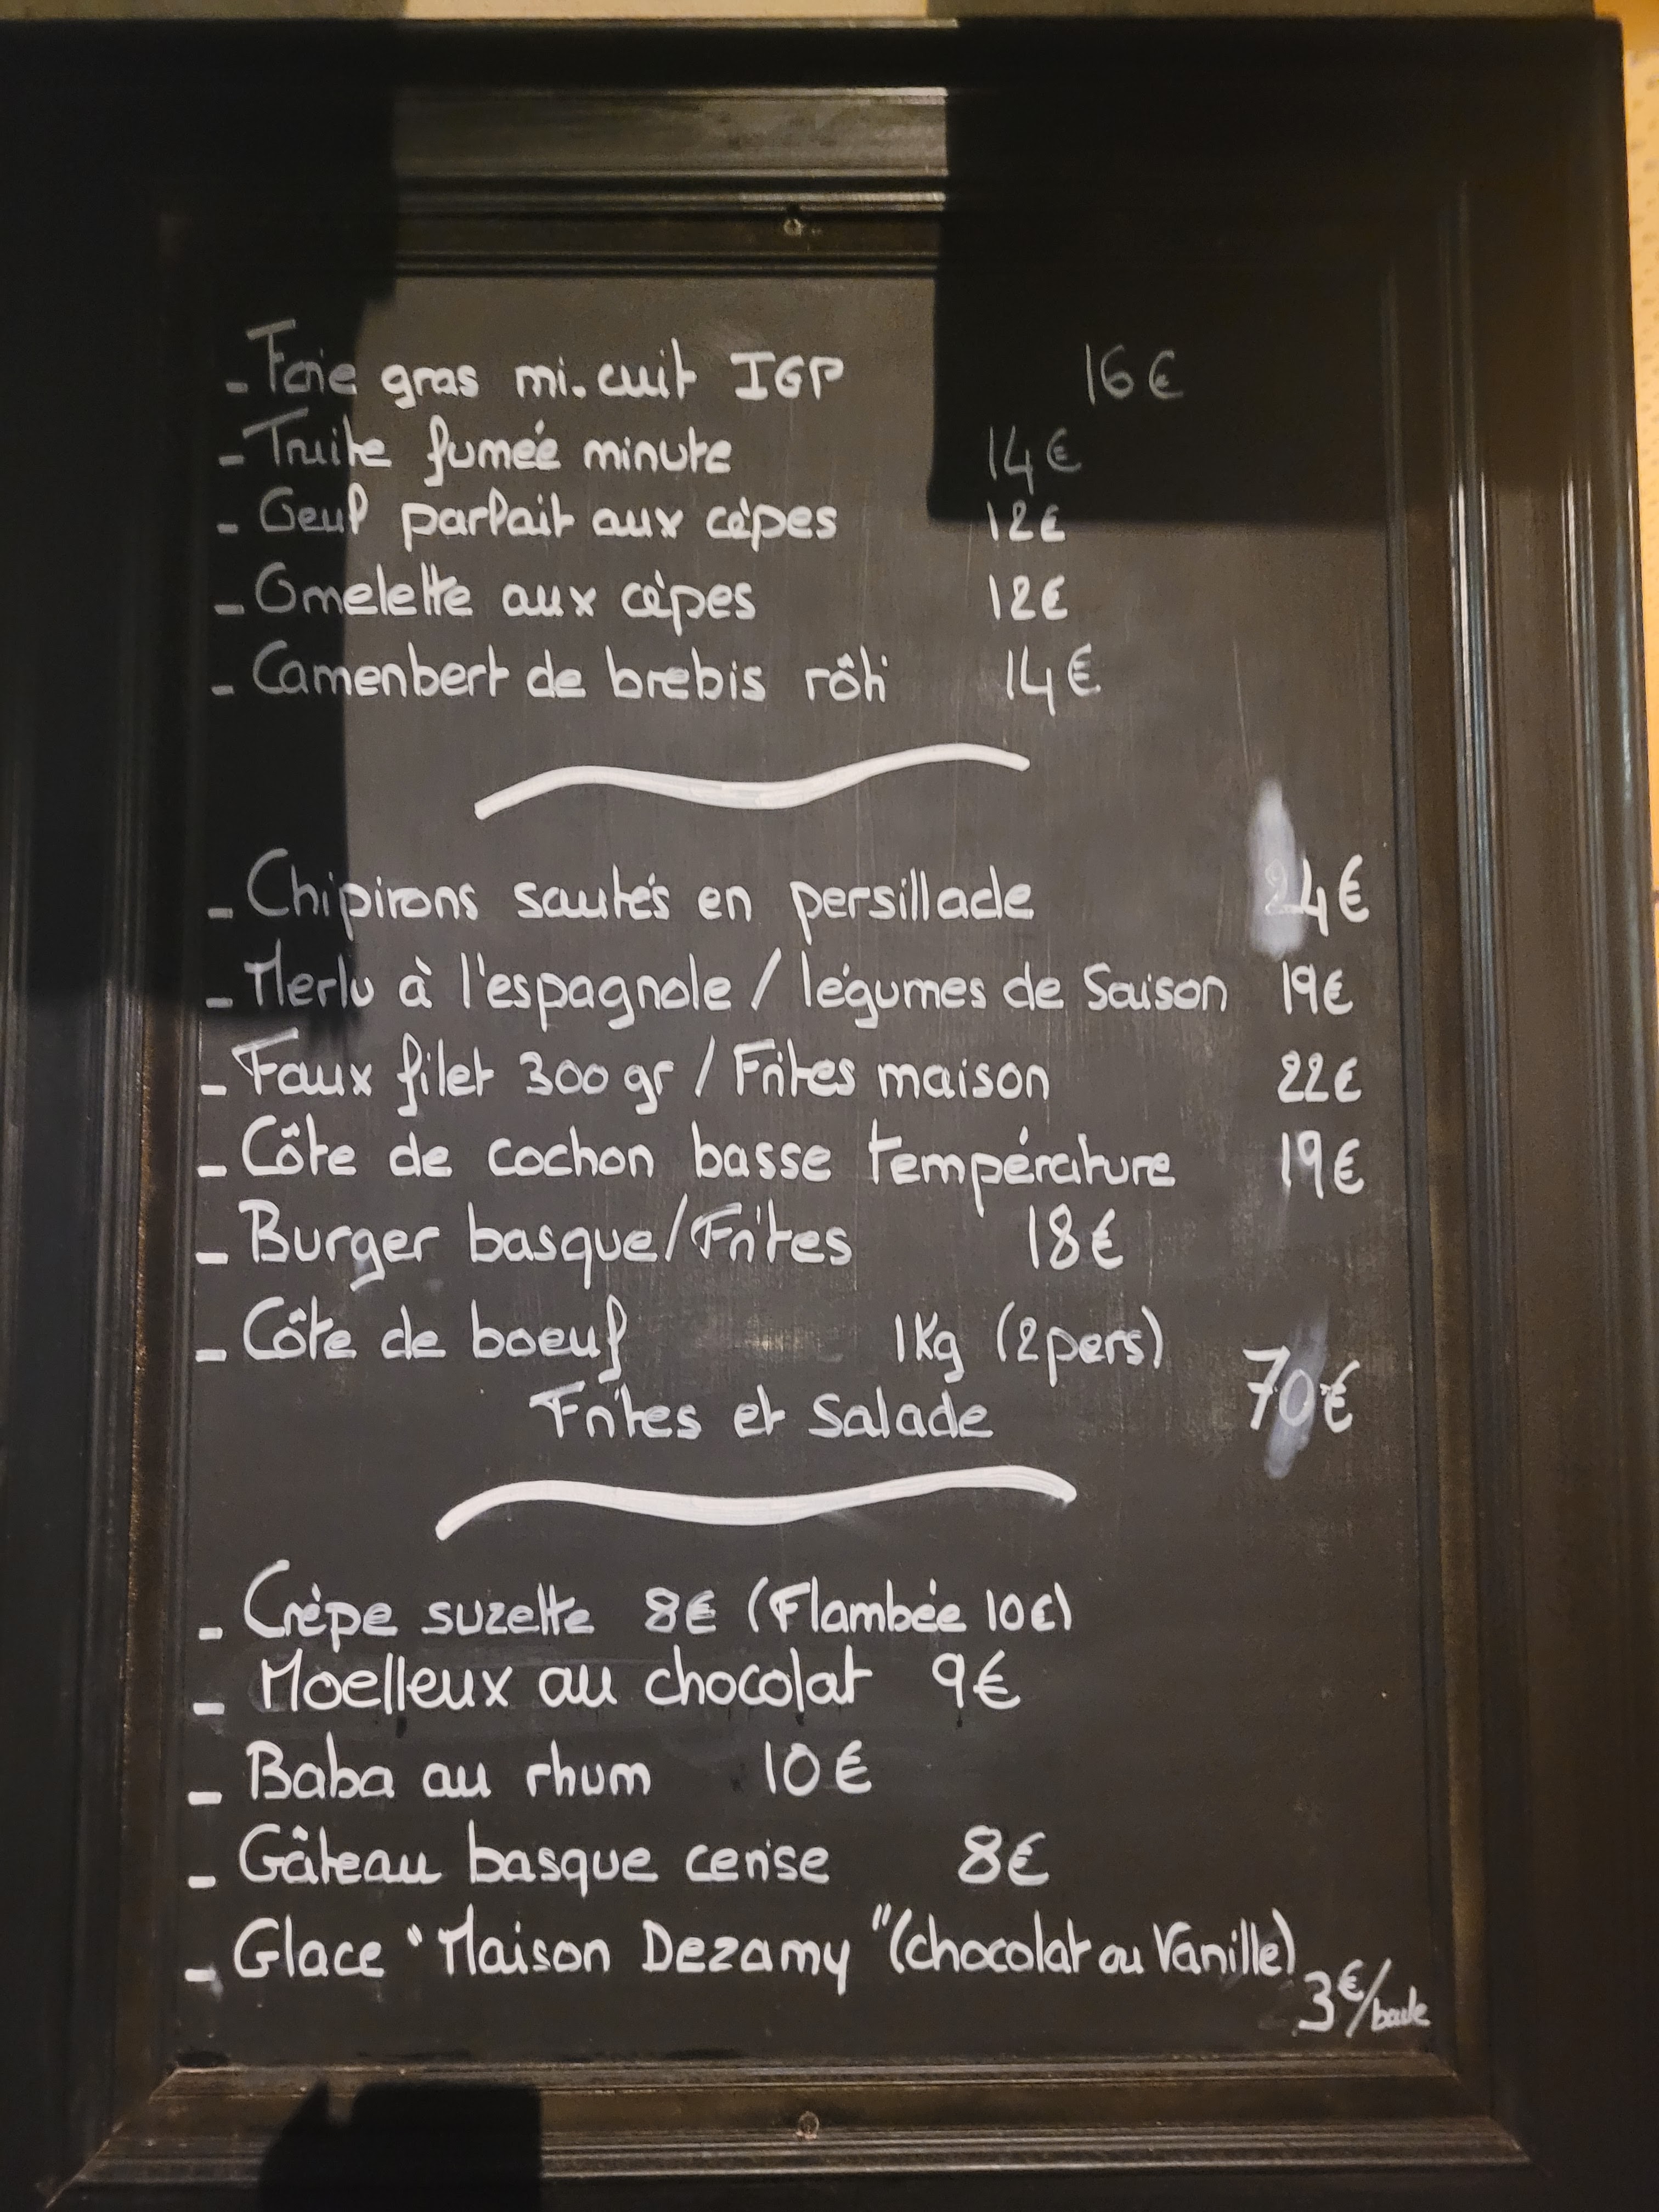 - Foie gras mi.cuit IGP 16€
- Truite fumée minute 14€
- Oeuf parfait aux cèpes 12€
- Omelette aux cèpes 12€
- Camenbert de brebis rôti 14€
- Chipirons sautés en persillade 24€
- Merlu à l'espagnole / légumes de Saison 19€
- Faux filet 300 gr / Frites maison 22€
- Côte de cochon basse température 19€
- Burger basque/Frites 18€
- Côte de boeuf 1Kg (2pers)
Frites et Salade 70€
- Crèpe suzette 8€ (Flambée 10€)
- Moelleux au chocolat 9€
- Baba au rhum 10€
- Gâteau basque cerise 8€
- Glace "Maison Dezamy" (chocolat ou Vanille)
3€/boule